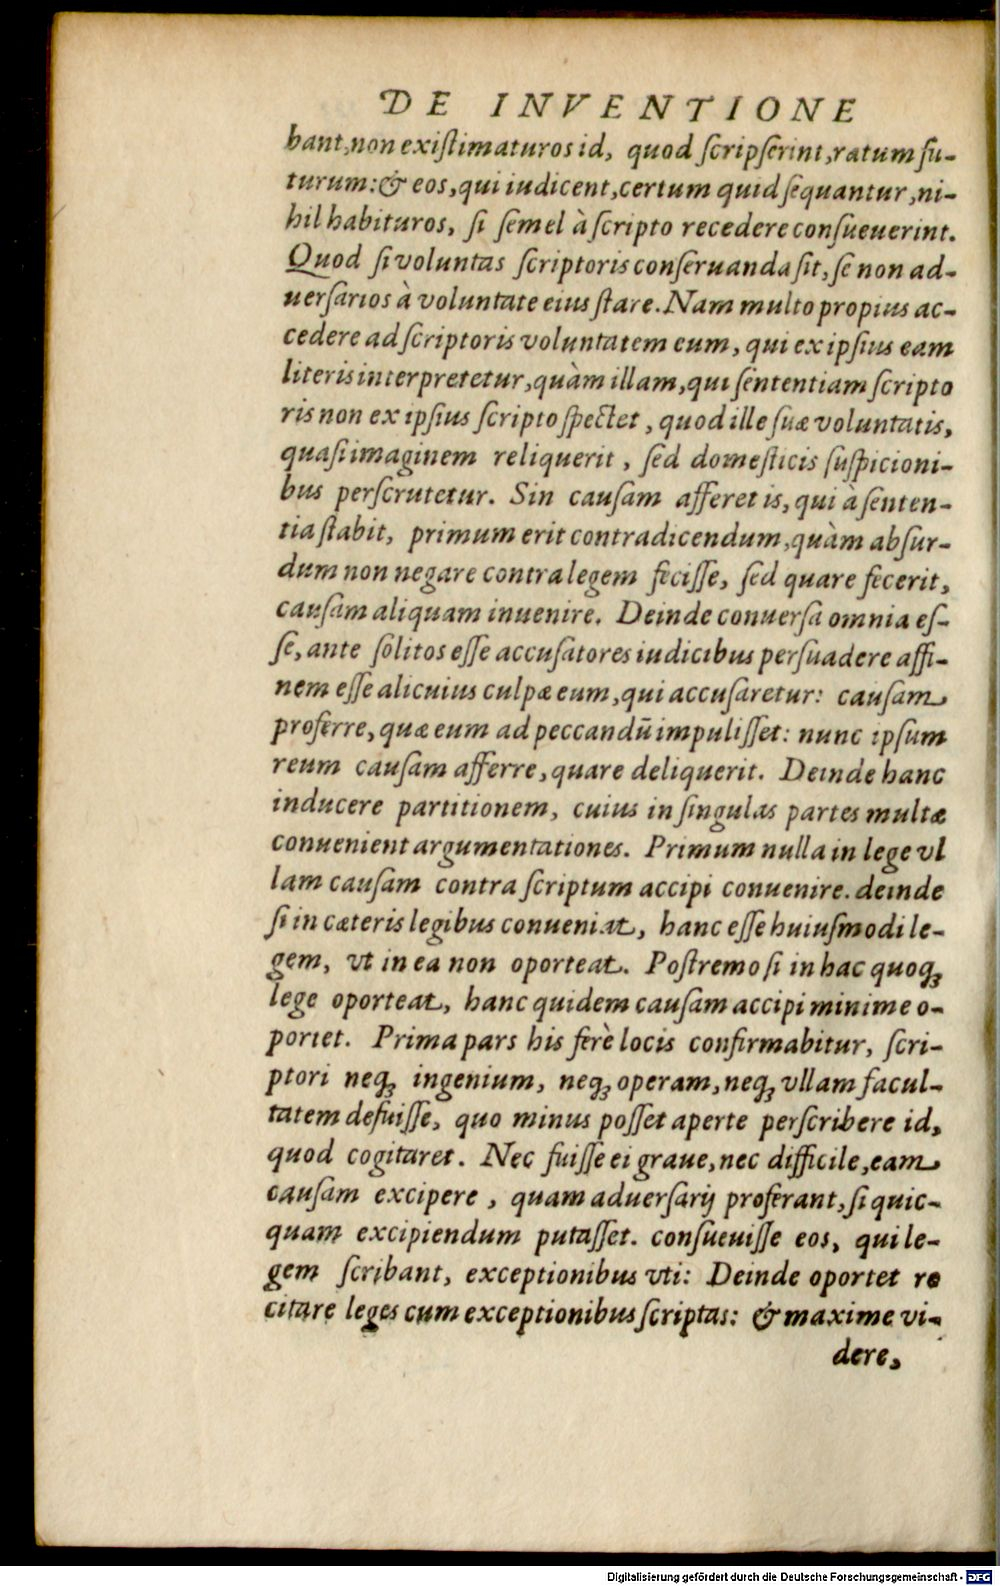 DE INVENTIONE
bant, non existimaturos id, quod scripserint, ratum fu-
turum: & eos, qui iudicent, certum quid sequantur, ni-
hil habituros, si semel à scripto recedere consueuerint.
Quod si voluntas scriptoris conseruanda sit, se non ad-
uersarios à voluntate eius stare. Nam multo propius ac-
cedere ad scriptoris voluntatem eum, qui ex ipsius eam
literis interpretetur, quàm illam, qui sententiam scripto
ris non ex ipsius scripto spectet, quod ille suæ voluntatis,
quasi imaginem reliquerit, sed domesticis suspicioni-
bus perscrutetur. Sin causam afferet is, qui à senten-
tia stabit, primum erit contradicendum, quàm absur-
dum non negare contra legem fecisse, sed quare fecerit,
causam aliquam inuenire. Deinde conuersa omnia es-
se, ante solitos esse accusatores iudicibus persuadere affi-
nem esse alicuius culpæ eum, qui accusaretur: causam
proferre, quæ eum ad peccandū impulisset: nunc ipsum
reum causam afferre, quare deliquerit. Deinde hanc
inducere partitionem, cuius in singulas partes multæ
conuenient argumentationes. Primum nulla in lege vl
lam causam contra scriptum accipi conuenire. deinde
si in cæteris legibus conueniat, hanc esse huiusmodi le-
gem, vt in ea non oporteat. Postremo si in hac quoqꝫ
lege oporteat, hanc quidem causam accipi minime o-
portet. Prima pars his ferè locis confirmabitur, scri-
ptori neqꝫ ingenium, neqꝫ operam, neqꝫ vllam facul-
tatem defuisse, quo minus posset aperte perscribere id,
quod cogitaret. Nec fuisse ei graue, nec difficile, eam
causam excipere, quam aduersarij proferant, si quic-
quam excipiendum putasset. consueuisse eos, qui le-
gem scribant, exceptionibus vti: Deinde oportet re
citare leges cum exceptionibus scriptas: & maxime vi-
dere,
Digitalisierung gefördert durch die Deutsche Forschungsgemeinschaft - DFG